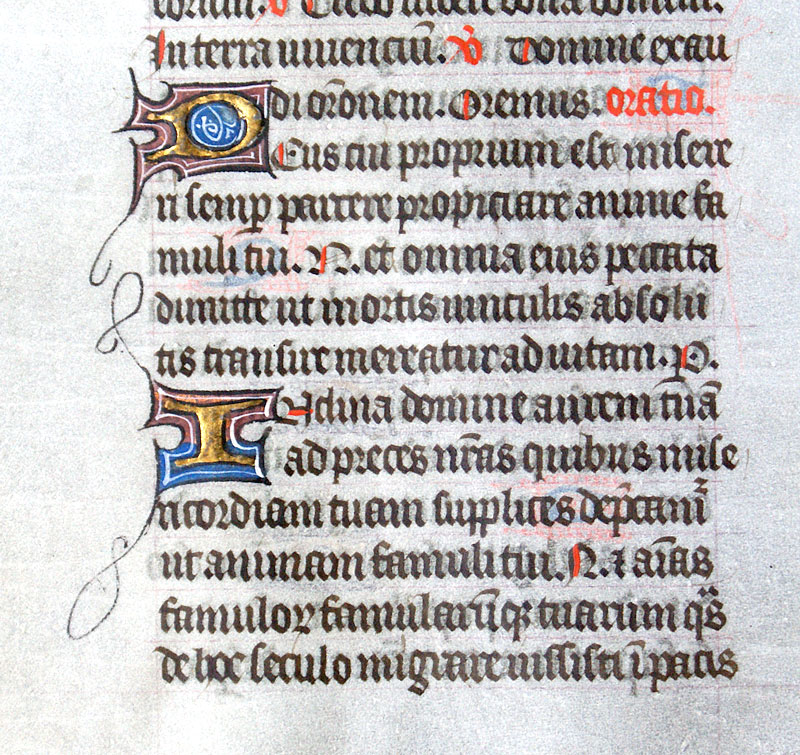 bona domini.
In terra viventiū. V̄ Domine exau
di orōnem. Oremus. oratio.
Deus cui proprium est misere
ri semp parcere propiciare anime fa
muli tui. N. et omnia eius peccata
dimitte ut mortis vinculis absolu
tis transire mereatur ad vitam. P.
INclina domine aurem tuā
ad preces nr̄as quibus mise
ricordiam tuam supplices dep̄cam̄
ut animam famuli tui. N. ⁊ aīas
famuloꝝ famularūqꝫ tuarum q̄s
de hoc seculo migrare iussisti ī pacis